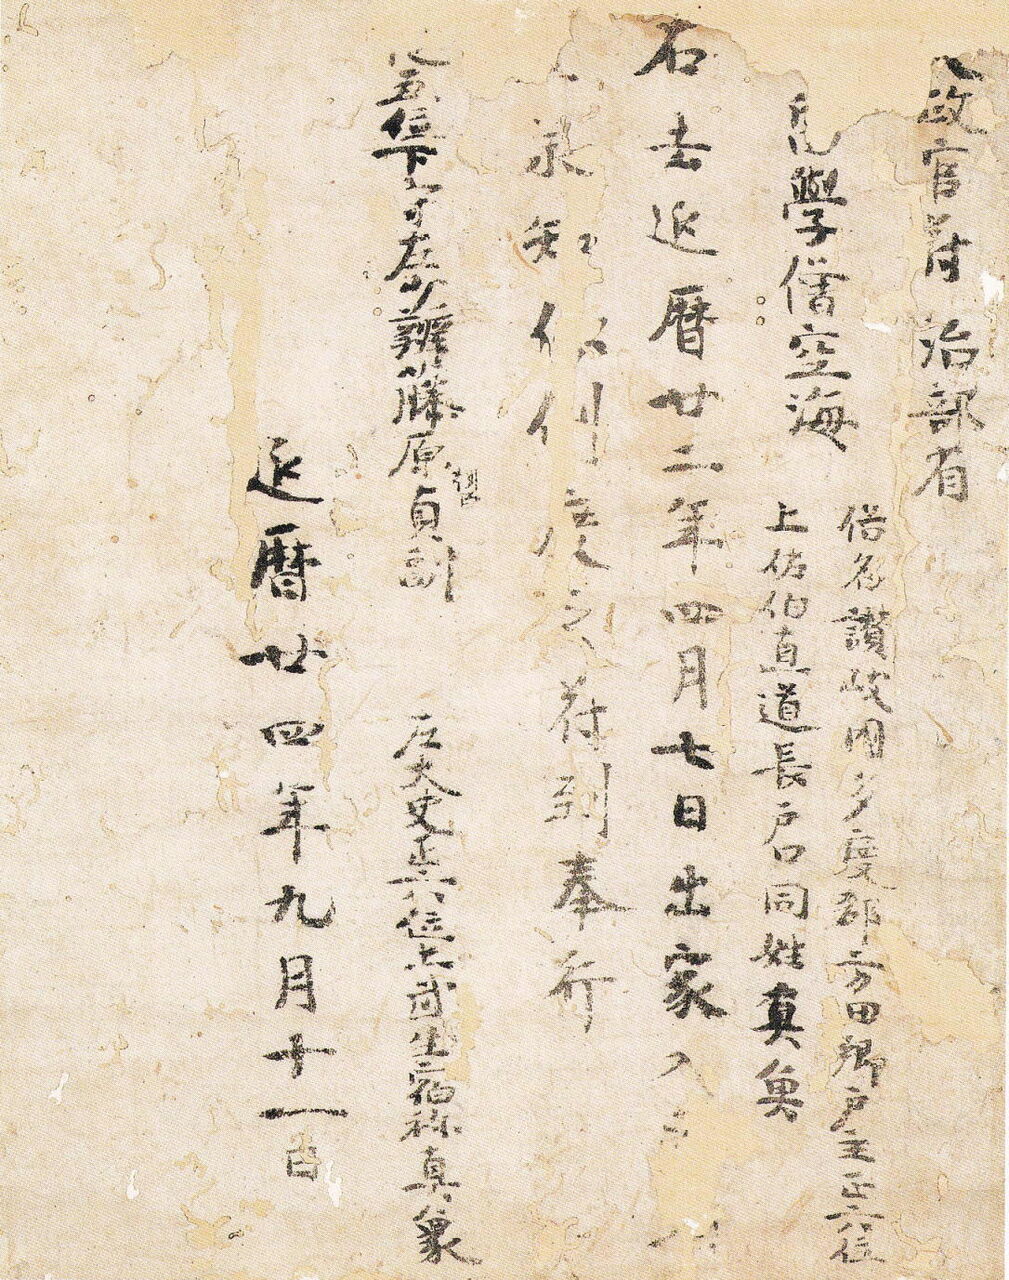 政官符 治部省
學僧空海
俗名讃岐國多度郡方田郷戸主正六位
上佐伯直道長戸口同姓真魚
右去延暦廿二年四月七日出家入
承知依例度之符到奉行
從五位下守左少辨藤原貞副
左大史正六位上武生宿祢真象
延暦廿四年九月十一日